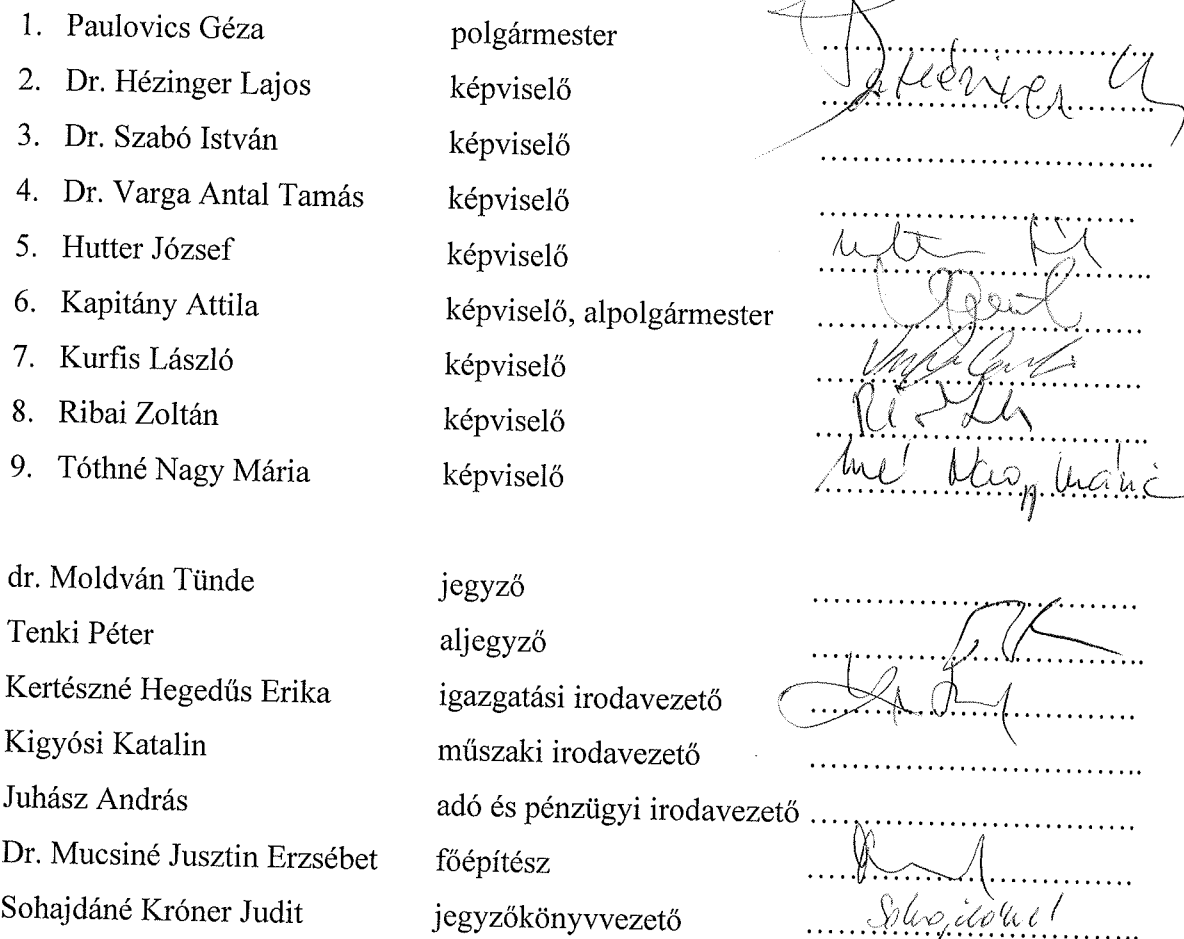 1. Paulovics Géza polgármester ..............................
2. Dr. Hézinger Lajos képviselő .............................. Dr Hézinger
3. Dr. Szabó István képviselő ..............................
4. Dr. Varga Antal Tamás képviselő ..............................
5. Hutter József képviselő ..............................
6. Kapitány Attila képviselő, alpolgármester ..............................
7. Kurfis László képviselő ..............................
8. Ribai Zoltán képviselő ..............................
9. Tóthné Nagy Mária képviselő .............................. Nagy Mária
dr. Moldván Tünde jegyző ..............................
Tenki Péter aljegyző ..............................
Kertészné Hegedűs Erika igazgatási irodavezető ..............................
Kigyósi Katalin műszaki irodavezető ..............................
Juhász András adó és pénzügyi irodavezető ..............................
Dr. Mucsiné Jusztin Erzsébet főépítész ..............................
Sohajdáné Króner Judit jegyzőkönyvvezető .............................. Sohajdáné